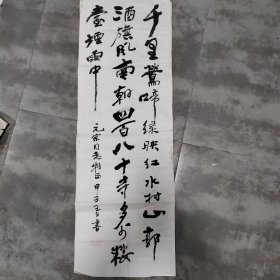 千里莺啼绿映红水村山郭
酒旗风南朝四百八十寺多少楼
台烟雨中